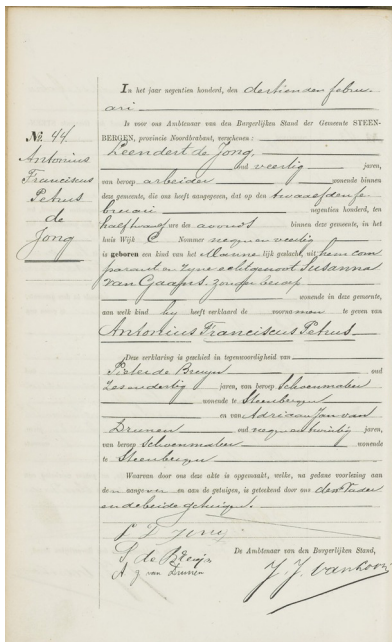 In het jaar negentien honderd, den dertienden februari
ari
Is voor ons Ambtenaar van den Burgerlijken Stand der Gemeente STEEN-
BERGEN, provincie Noordbrabant, verschenen:
Leendert de Jong
oud veertig jaren,
van beroep arbeider wonende binnen
deze gemeente, die ons heeft aangegeven, dat op den twaalfden fe
bruari negentien honderd, ten
half twaalf ure des avonds binnen deze gemeente, in het
huis Wijk C Nummer negen en veertig
is geboren een kind van het Manne lijk geslacht, uit hem com
parant en zijne echtgenoot Susanna
van Gaans, zonder beroep
wonende in deze gemeente,
aan welk kind hy heeft verklaard de voorna men te geven van
Antonius Franciscus Petrus
Deze verklaring is geschied in tegenwoordigheid van
Pieter de Bruyn oud
zes en dertig jaren, van beroep Schoenmaker
wonende te Steenbergen
en van Adriaan Jan van
Drunen oud negen en twintig jaren,
van beroep schoenmaker wonende
te Steenbergen
Waarvan door ons deze akte is opgemaakt, welke, na gedane voorlezing aan
de n aangever en aan de getuigen, is geteekend door ons den Vader
en de beide getuigen.
L D Jong
De Ambtenaar van den Burgerlijken Stand,
de Bruijn
A J van Drunen
J. J. van Loon
No. 44.
Antonius
Franciscus
Petrus
de
Jong